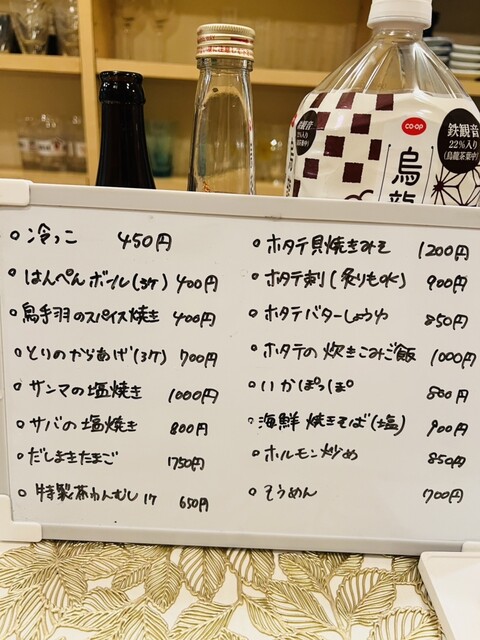 co-op
鉄観音
22%入り
(烏龍茶葉中)
烏龍
○冷っこ 450円
○はんぺんボール(3ケ) 400円
○鳥手羽のスパイス焼き 400円
○とりのからあげ(3ケ) 700円
○サンマの塩焼き 1000円
○サバの塩焼き 800円
○だしまきたまご 1750円
○特製茶わんむし 1ケ 650円
○ホタテ貝焼きみそ 1200円
○ホタテ刺(炙りもOK) 900円
○ホタテバターしょうゆ 850円
○ホタテの炊きこみご飯 1000円
○いかぽっぽ 800円
○海鮮焼きそば(塩) 900円
○ホルモン炒め 850円
○そうめん 700円